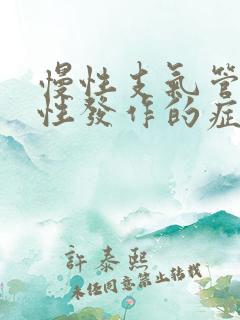 慢性支氣管
性發作的症
許泰熙
未經同意禁止轉載